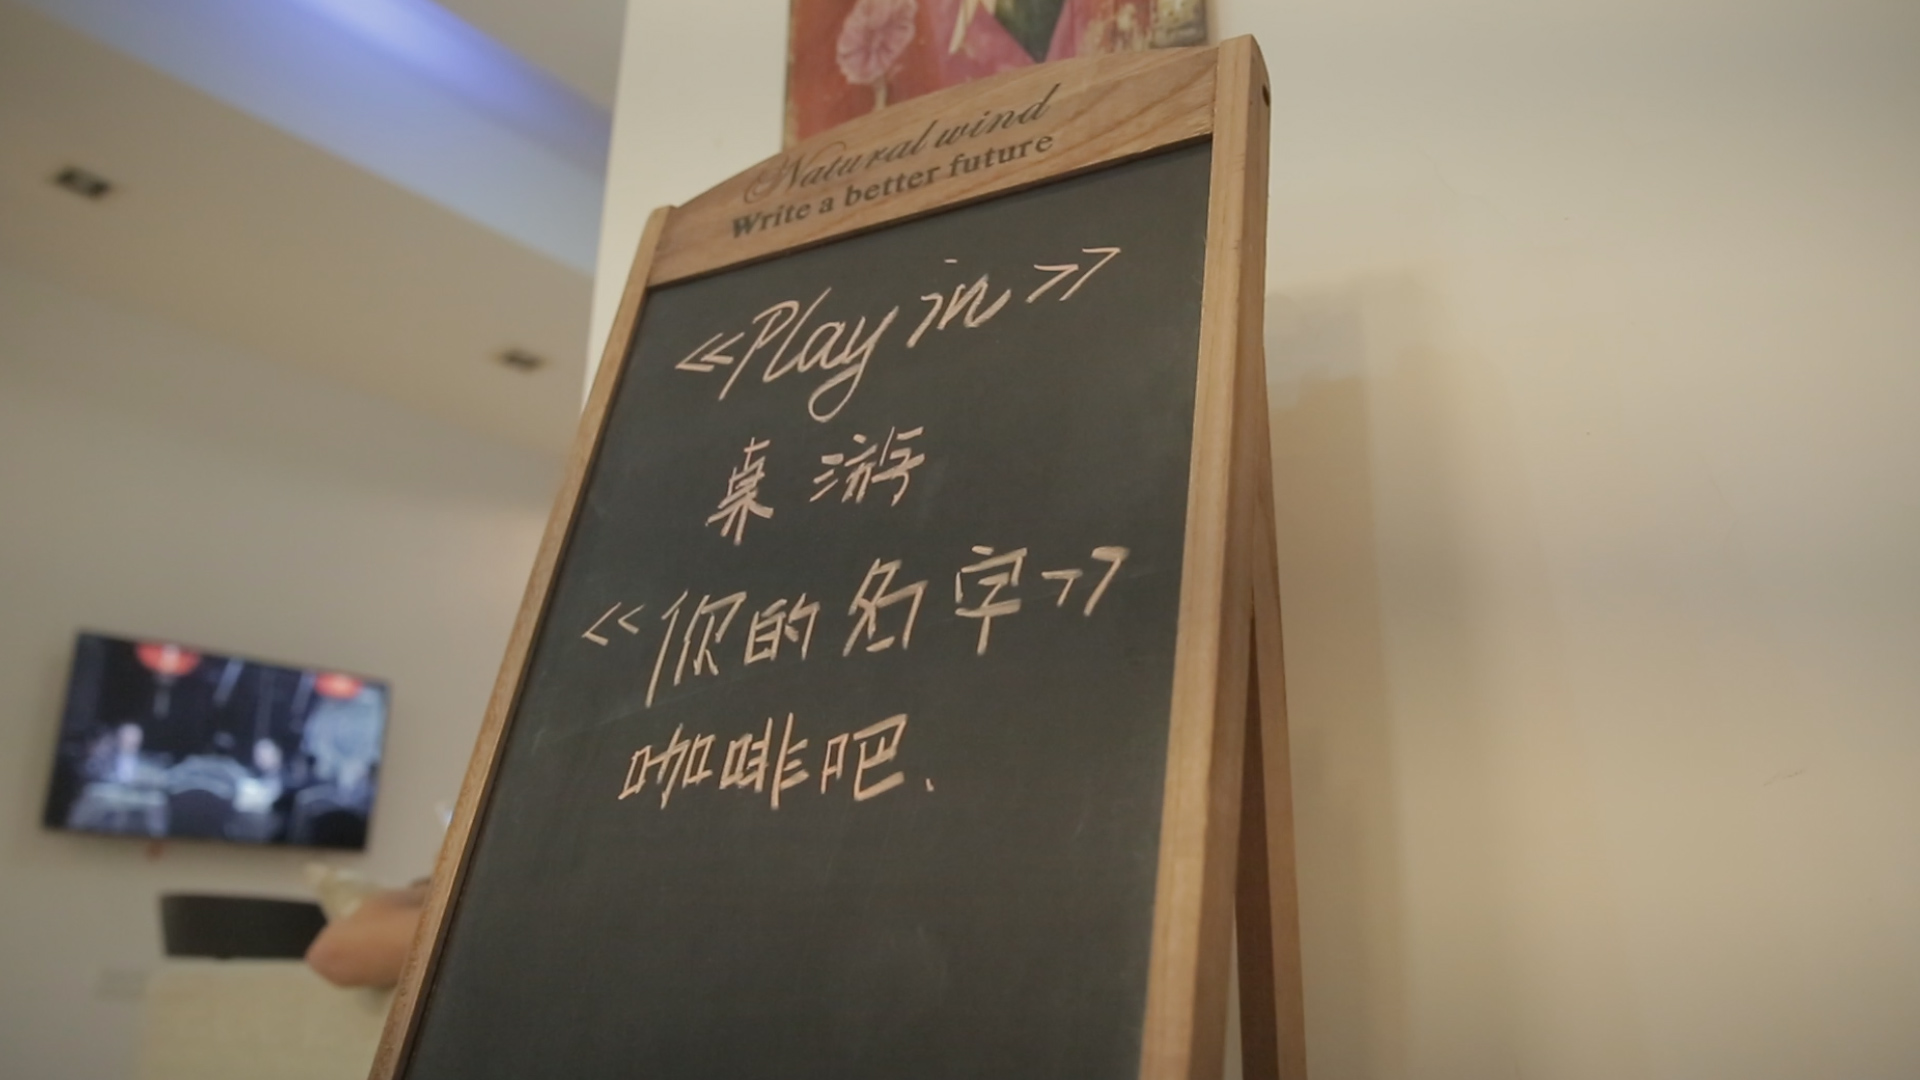 Natural wind
Write a better future
<<Play in>>
桌游
<<你的名字>>
咖啡吧.